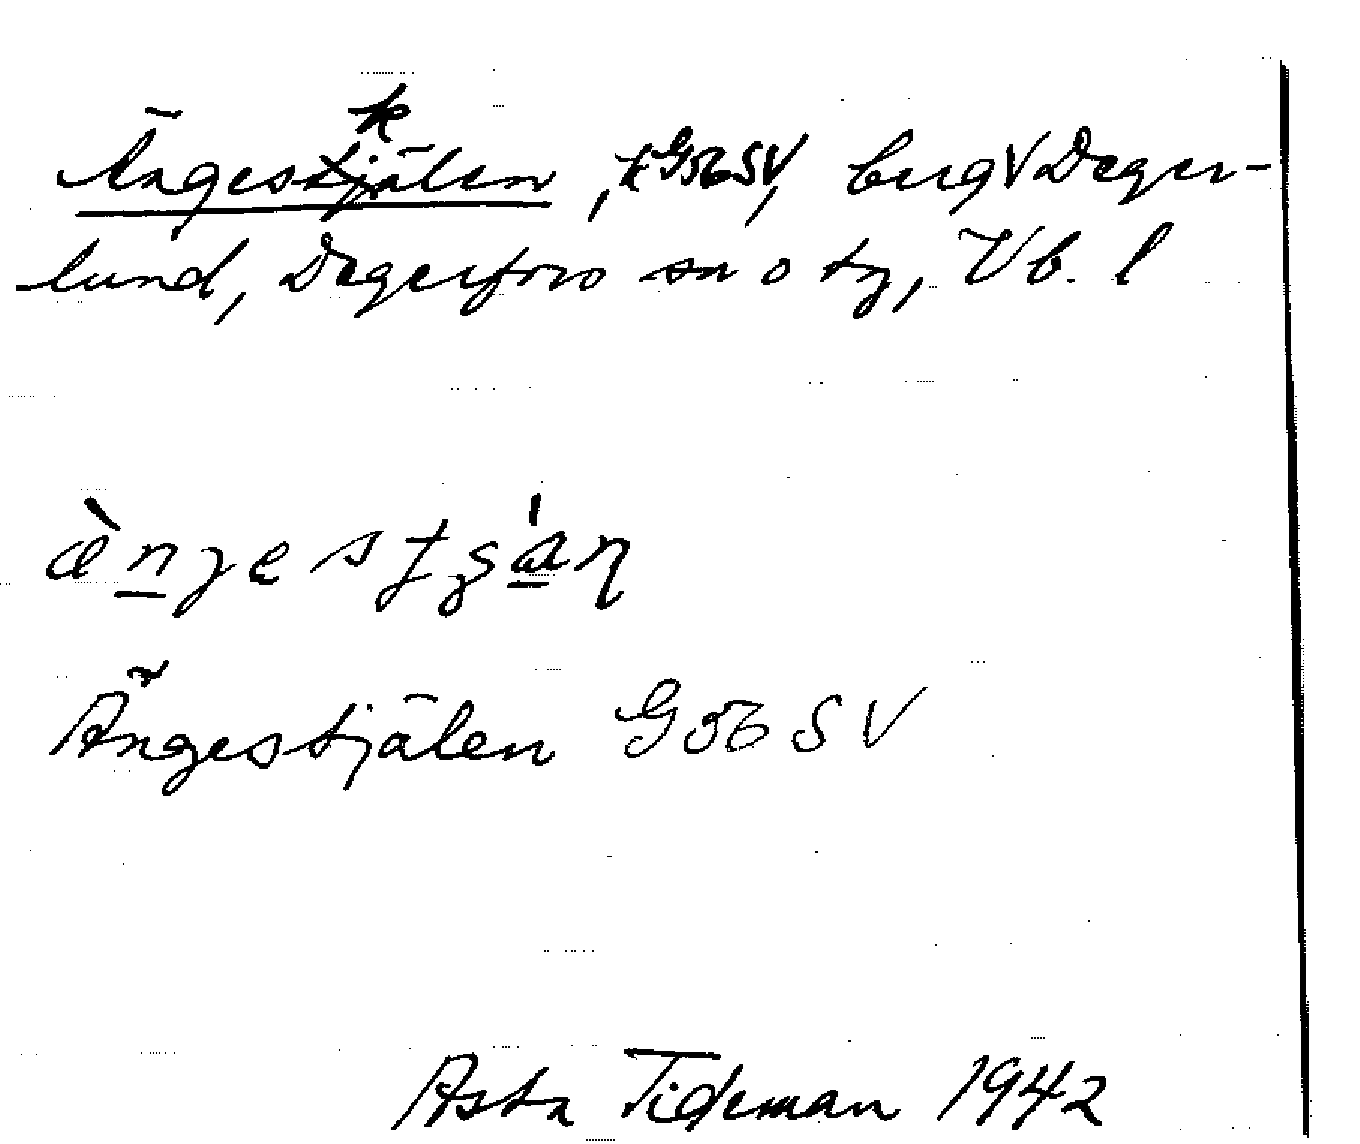 k
Ängestjälen, k G56SV, berg V Deger-
lund, Degerfors sn o tg, Vb. l
Ängestjälen G56 SV
Asta Tideman 1942